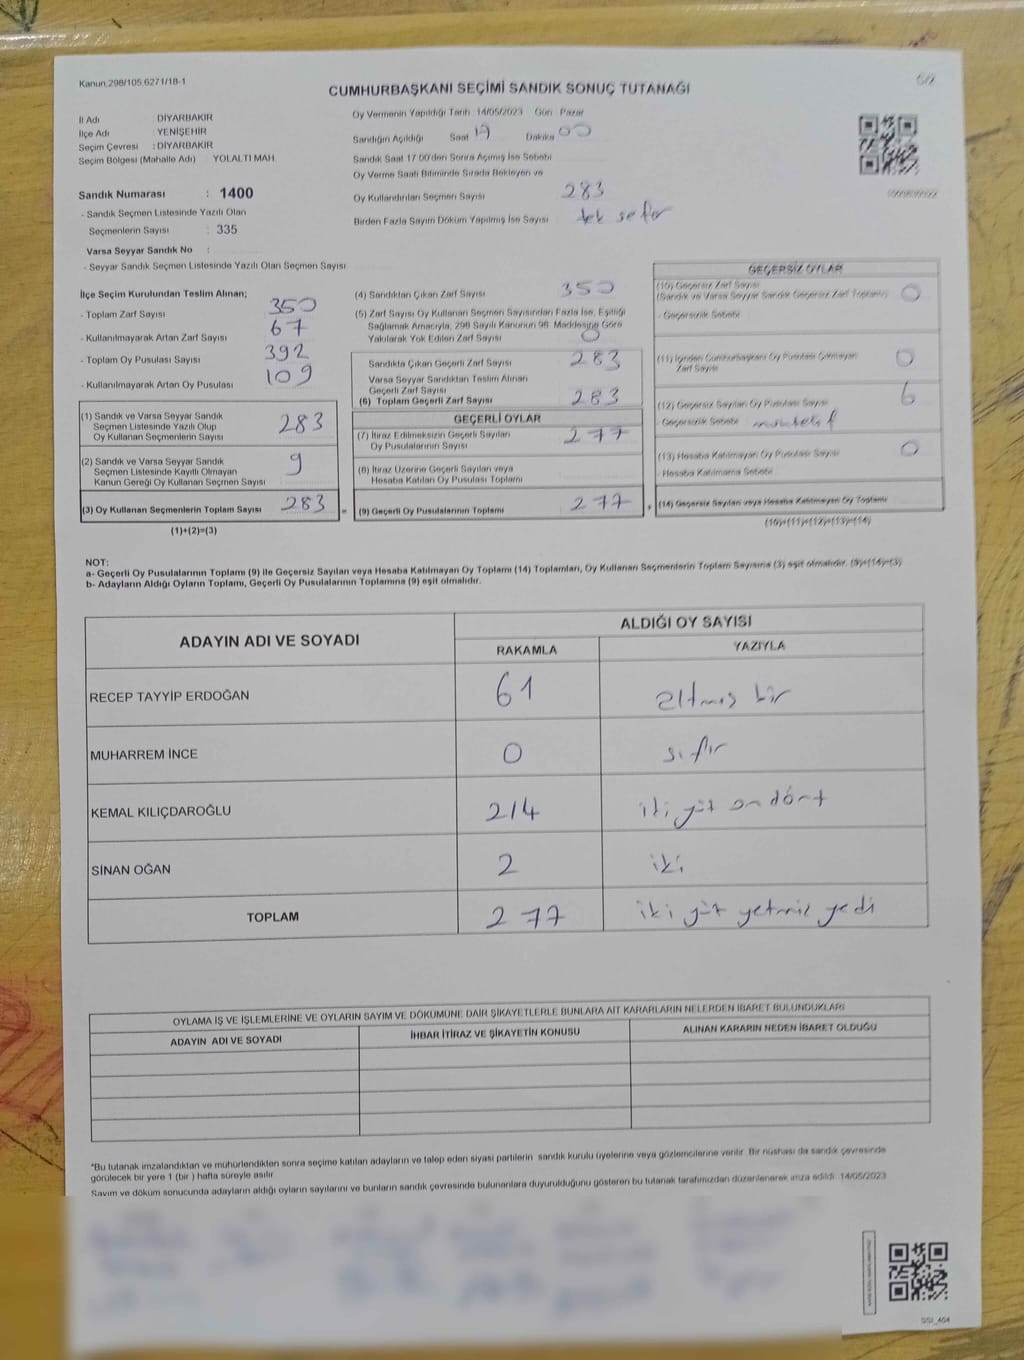 Kanun.298/105.6271/18-1
CUMHURBAŞKANI SEÇİMİ SANDIK SONUÇ TUTANAĞI
İl Adı DİYARBAKIR
İlçe Adı YENİŞEHİR
Seçim Çevresi : DİYARBAKIR
Seçim Bölgesi (Mahalle Adı) YOLALTI MAH.
Sandık Numarası : 1400
- Sandık Seçmen Listesinde Yazılı Olan
Seçmenlerin Sayısı : 335
Varsa Seyyar Sandık No :
- Seyyar Sandık Seçmen Listesinde Yazılı Olan Seçmen Sayısı
Oy Vermenin Yapıldığı Tarih 14/05/2023 Gün Pazar
Sandığın Açıldığı Saat 17 Dakika 00
Sandık Saat 17.00'den Sonra Açılmış İse Sebebi
Oy Verme Saati Bitiminde Sırada Bekleyen ve
Oy Kullandırılan Seçmen Sayısı 283
Birden Fazla Sayım Döküm Yapılmış İse Sayısı tek sefer
İlçe Seçim Kurulundan Teslim Alınan;
- Toplam Zarf Sayısı 350
- Kullanılmayarak Artan Zarf Sayısı 67
- Toplam Oy Pusulası Sayısı 392
- Kullanılmayarak Artan Oy Pusulası 109
(1) Sandık ve Varsa Seyyar Sandık
Seçmen Listesinde Yazılı Olup
Oy Kullanan Seçmenlerin Sayısı 283
(2) Sandık ve Varsa Seyyar Sandık
Seçmen Listesinde Kayıtlı Olmayan
Kanun Gereği Oy Kullanan Seçmen Sayısı 9
(3) Oy Kullanan Seçmenlerin Toplam Sayısı 283 =
(1)+(2)=(3)
(4) Sandıktan Çıkan Zarf Sayısı 350
(5) Zarf Sayısı Oy Kullanan Seçmen Sayısından Fazla İse, Eşitliği
Sağlamak Amacıyla, 298 Sayılı Kanunun 98. Maddesine Göre
Yakılarak Yok Edilen Zarf Sayısı 0
Sandıkta Çıkan Geçerli Zarf Sayısı 283
Varsa Seyyar Sandıktan Teslim Alınan
Geçerli Zarf Sayısı
(6) Toplam Geçerli Zarf Sayısı 283
GEÇERLİ OYLAR
(7) İtiraz Edilmeksizin Geçerli Sayılan
Oy Pusulalarının Sayısı 277
(8) İtiraz Üzerine Geçerli Sayılan veya
Hesaba Katılan Oy Pusulası Toplamı
(9) Geçerli Oy Pusulalarının Toplamı 277 +
GEÇERSİZ OYLAR
(10) Geçersiz Zarf Sayısı
(Sandık ve Varsa Seyyar Sandık Geçersiz Zarf Toplamı) 0
- Geçersizlik Sebebi
(11) İçinden Cumhurbaşkanı Oy Pusulası Çıkmayan
Zarf Sayısı 0
(12) Geçersiz Sayılan Oy Pusulası Sayısı 6
- Geçersizlik Sebebi
(13) Hesaba Katılmayan Oy Pusulası Sayısı 0
- Hesaba Katılmama Sebebi
(14) Geçersiz Sayılan veya Hesaba Katılmayan Oy Toplamı
(10)+(11)+(12)+(13)=(14)
NOT:
a- Geçerli Oy Pusulalarının Toplamı (9) ile Geçersiz Sayılan veya Hesaba Katılmayan Oy Toplamı (14) Toplamları, Oy Kullanan Seçmenlerin Toplam Sayısına (3) eşit olmalıdır. (9)+(14)=(3)
b- Adayların Aldığı Oyların Toplamı, Geçerli Oy Pusulalarının Toplamına (9) eşit olmalıdır.
ADAYIN ADI VE SOYADI
ALDIĞI OY SAYISI
RAKAMLA YAZIYLA
RECEP TAYYİP ERDOĞAN 61 altmış bir
MUHARREM İNCE 0 sıfır
KEMAL KILIÇDAROĞLU 214 iki yüz on dört
SİNAN OĞAN 2 iki
TOPLAM 277 iki yüz yetmiş yedi
OYLAMA İŞ VE İŞLEMLERİNE VE OYLARIN SAYIM VE DÖKÜMÜNE DAİR ŞİKAYETLERLE BUNLARA AİT KARARLARIN NELERDEN İBARET BULUNDUKLARI
ADAYIN ADI VE SOYADI İHBAR İTİRAZ VE ŞİKAYETİN KONUSU ALINAN KARARIN NEDEN İBARET OLDUĞU
*Bu tutanak imzalandıktan ve mühürlendikten sonra seçime katılan adayların ve talep eden siyasi partilerin sandık kurulu üyelerine veya gözlemcilerine verilir. Bir nüshası da sandık çevresinde
görülecek bir yere 1 (bir ) hafta süreyle asılır.
Sayım ve döküm sonucunda adayların aldığı oyların sayılarını ve bunların sandık çevresinde bulunanlara duyurulduğunu gösteren bu tutanak tarafımızdan düzenlenerek imza edildi. 14/05/2023